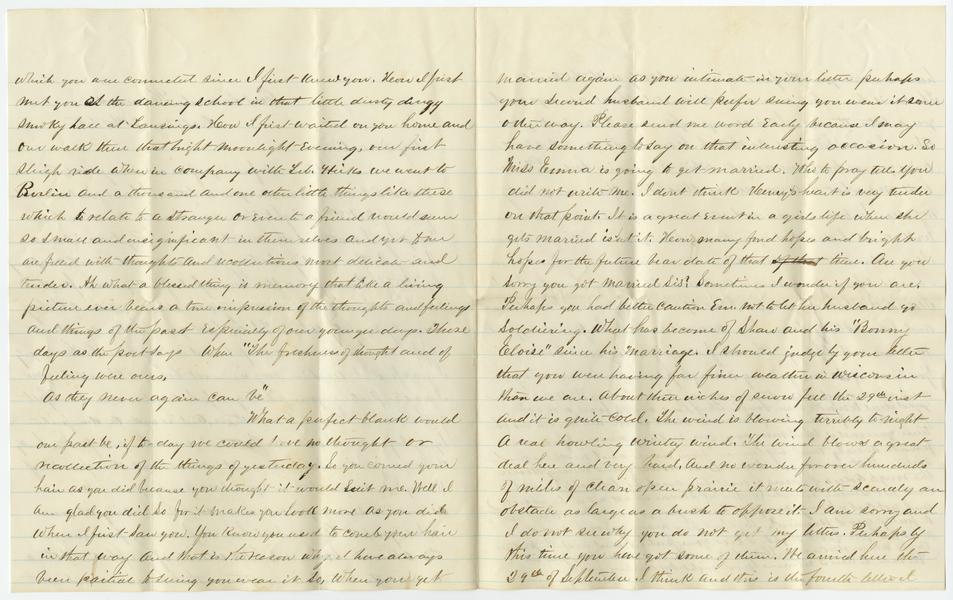 which you are connected since I first knew you. How I first
met you at the dancing school in that little dusty dingy
smoky hall at Lansings. How I first waited on you home and
our walk there that bright Moonlight Evening, our first
sleigh ride when in company with Lib. Hicks we went to
Berlin and a thousand and one other little things like these
which to relate to a stranger or even to a friend would seem
so small and insignificant in themselves and yet to me
are filled with thoughts and recollections most delicate and
tender. Ah what a blessed thing is memory that like a living
picture ever bears a true impression of the thoughts and feelings
and things of the past Especially of our younger days. Those
days as the poet says When "The freshness of thought and of
feeling were ours,
As they never again can be"
What a perfect blank would
our past be, if to-day we could have no thought or
recollection of the things of yesterday. So you combed your
hair as you did because you thought it would suit me. Well I
am glad you did so for it makes you look more as you did
when I first saw you. You know you used to comb your hair
in that way And that is the reason why I have always
been partial to seeing you wear it so, When you get
married again as you intimate in your letter perhaps
your second husband will prefer seeing you wear it some
other way. Please send me word Early because I may
have something to say on that interesting occasion. So
Miss Emma is going to get married. Who to pray tell. You
did not write me. I dont think Henry's heart is very tender
on that point. It is a great Event in a girls life when she
gets married is'nt it. How many fond hopes and bright
hopes for the future bear date of that time. Are you
sorry you got married Sis? Sometimes I wonder if you are.
Perhaps you had better caution Em. not to let her husband go
Soldiering. What has become of Shaw and his "Bonny
Eloise" since his marriage. I should judge by your letter
that you were having far finer weather in Wisconsin
than we are. About three inches of snow fell the 29th inst
and it is quite cold. The wind is blowing terribly to night
A real howling wintry wind. The wind blows a great
deal here and very hard, And no wonder for over hundreds
of miles of clean open prairie it meets with scarcely an
obstacle as large as a bush to oppose it. I am sorry and
I do not see why you do not get my letters. Perhaps by
this time you have got some of them. We arrived here the
29th of September I think and this is the fourth letter I